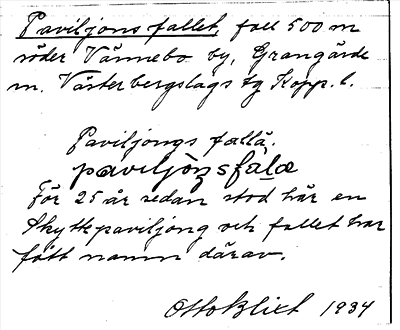 Paviljons fallet, fall 500 m
söder Vännebo by, Grangärde
m. Västerbergslags tg Kopp. l.
Paviljongs fallä.
paviljòŋsfala
För 25 år sedan stod här en
Skyttepaviljong och fallet har
fått namn därav.
Otto Blixt 1934